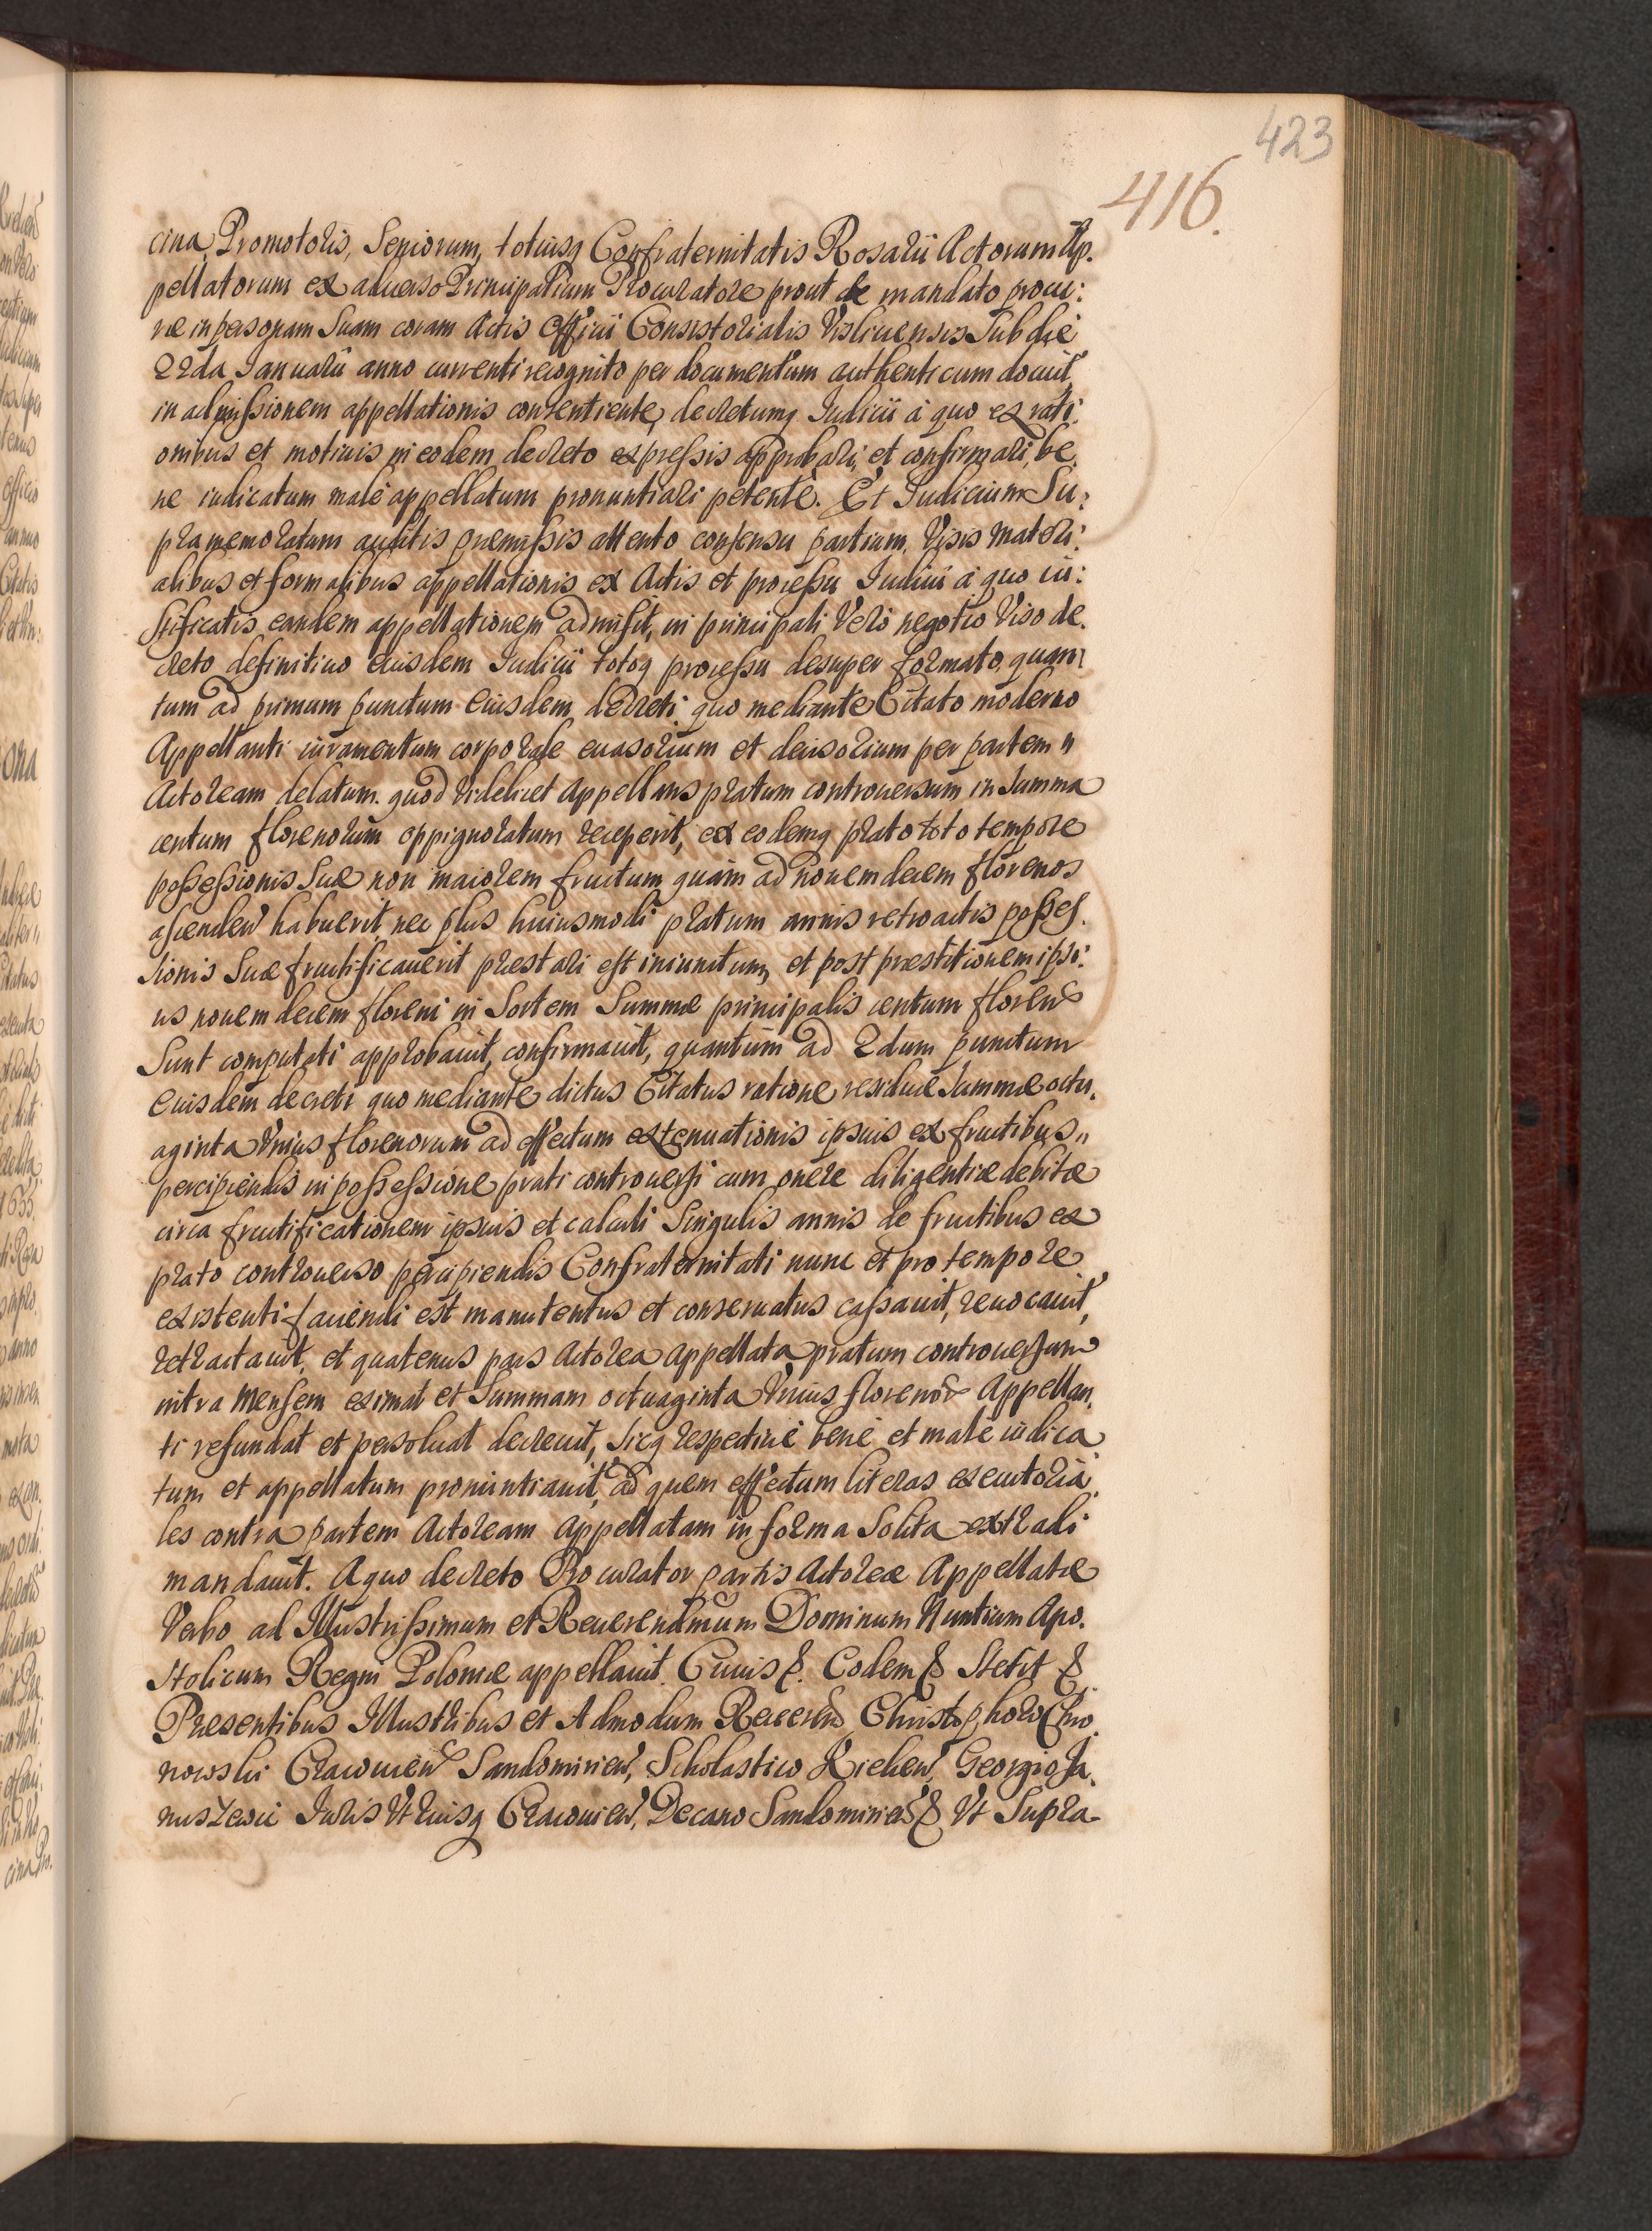 423
416.
cina, Promotoris, Seniorum, totiusq Confraternitatis Rosarii Actorum Ap.
pellatorum ex aduerso Principalium Procuratore prout de mandato procu:
ræ in personam Suam coram Actis Officii Consistorialis Visliciensis Sub die
22da Januarii anno currenti recognito per documentum authenticum docuit,
in admissionem appellationis consentiente, decretumq Iudicii à quo ex rati:
onibus et motiuis in eodem decreto expressis approbari, et confirmari, be,
ne iudicatum malè appellatum pronuntiari petente. Et Iudicium Su:
pramemoratum auditis præmissis attento consensu partium, Visis Materi:
alibus et formalibus appellationis ex Actis et processu Iudicii à quo iu:
stificatis eandem appellationem admisit, in principali Verò negotio Viso de,
creto definitiuo eiusdem Iudicii totoq processu desuper formato, quan:
tum ad primum punctum eiusdem decreti, quo mediante Citato moderno
Appellanti iuramentum corporale euasorium et decisorium per partem "
Actoream delatum. quod videlicet Appellans pratum controuersum in Summa
centum florenorum oppignoratum receperit, ex eodemq prato toto tempore
possessionis Suæ non maiorem fructum, quàm ad nouemdecem florenos
ascenden habuerit, nec plus huiusmodi pratum annis retroactis posses.
sionis Suæ fructificauerit præstari est iniunctum, et post præstitionem ipsi:
us nouemdecem floreni in Sortem Summæ principalis centum floren
Sunt computati approbauit, confirmauit, quantùm ad 2dum punctum
Eiusdem decreti quo mediante dictus Citatus ratione residuæ Summæ octu,
aginta Vnius florenorum ad effectum extenuationis ipsius ex fructibus "
percipiendis in possessione prati controuersi cum onere diligentiæ debitæ
circa fructificationem ipsius et calculi Singulis annis de fructibus ex
prato controuerso percipiendis Confraternitati nunc et pro tempore
existenti faciendi est manutentus et conseruatus cassauit, reuocauit,
retractauit, et quatenus pars Actorea Appellata pratum controuersum
intra Mensem eximat et Summam octuaginta Vnius florenor Appellan,
ti refundat et persoluat decreuit, Sicq respectiuè benè et malè iudica
tum et appellatum pronuntiauit, ad quem effectum literas executoria,
les contra partem Actoream Appellatam in forma Solita extradi
mandauit. A quo decreto Procurator partis Actoreæ Appellatæ
Verbo ad Illustrissimum et Reuerendmum Dominum Nuntium Apo.
stolicum Regni Poloniæ appellauit. Cuius &. Eodem & Stetit &.
Præsentibus Illustribus et Admodum Reueren Christophoro Chro,
nowski Cracouien Sandomirien, Scholastico Kielcen, Georgio Ja,
nuszewic Iuris Vtriusq Cracouien, Decano Sandomirien & Vt Supra
cina Pro.